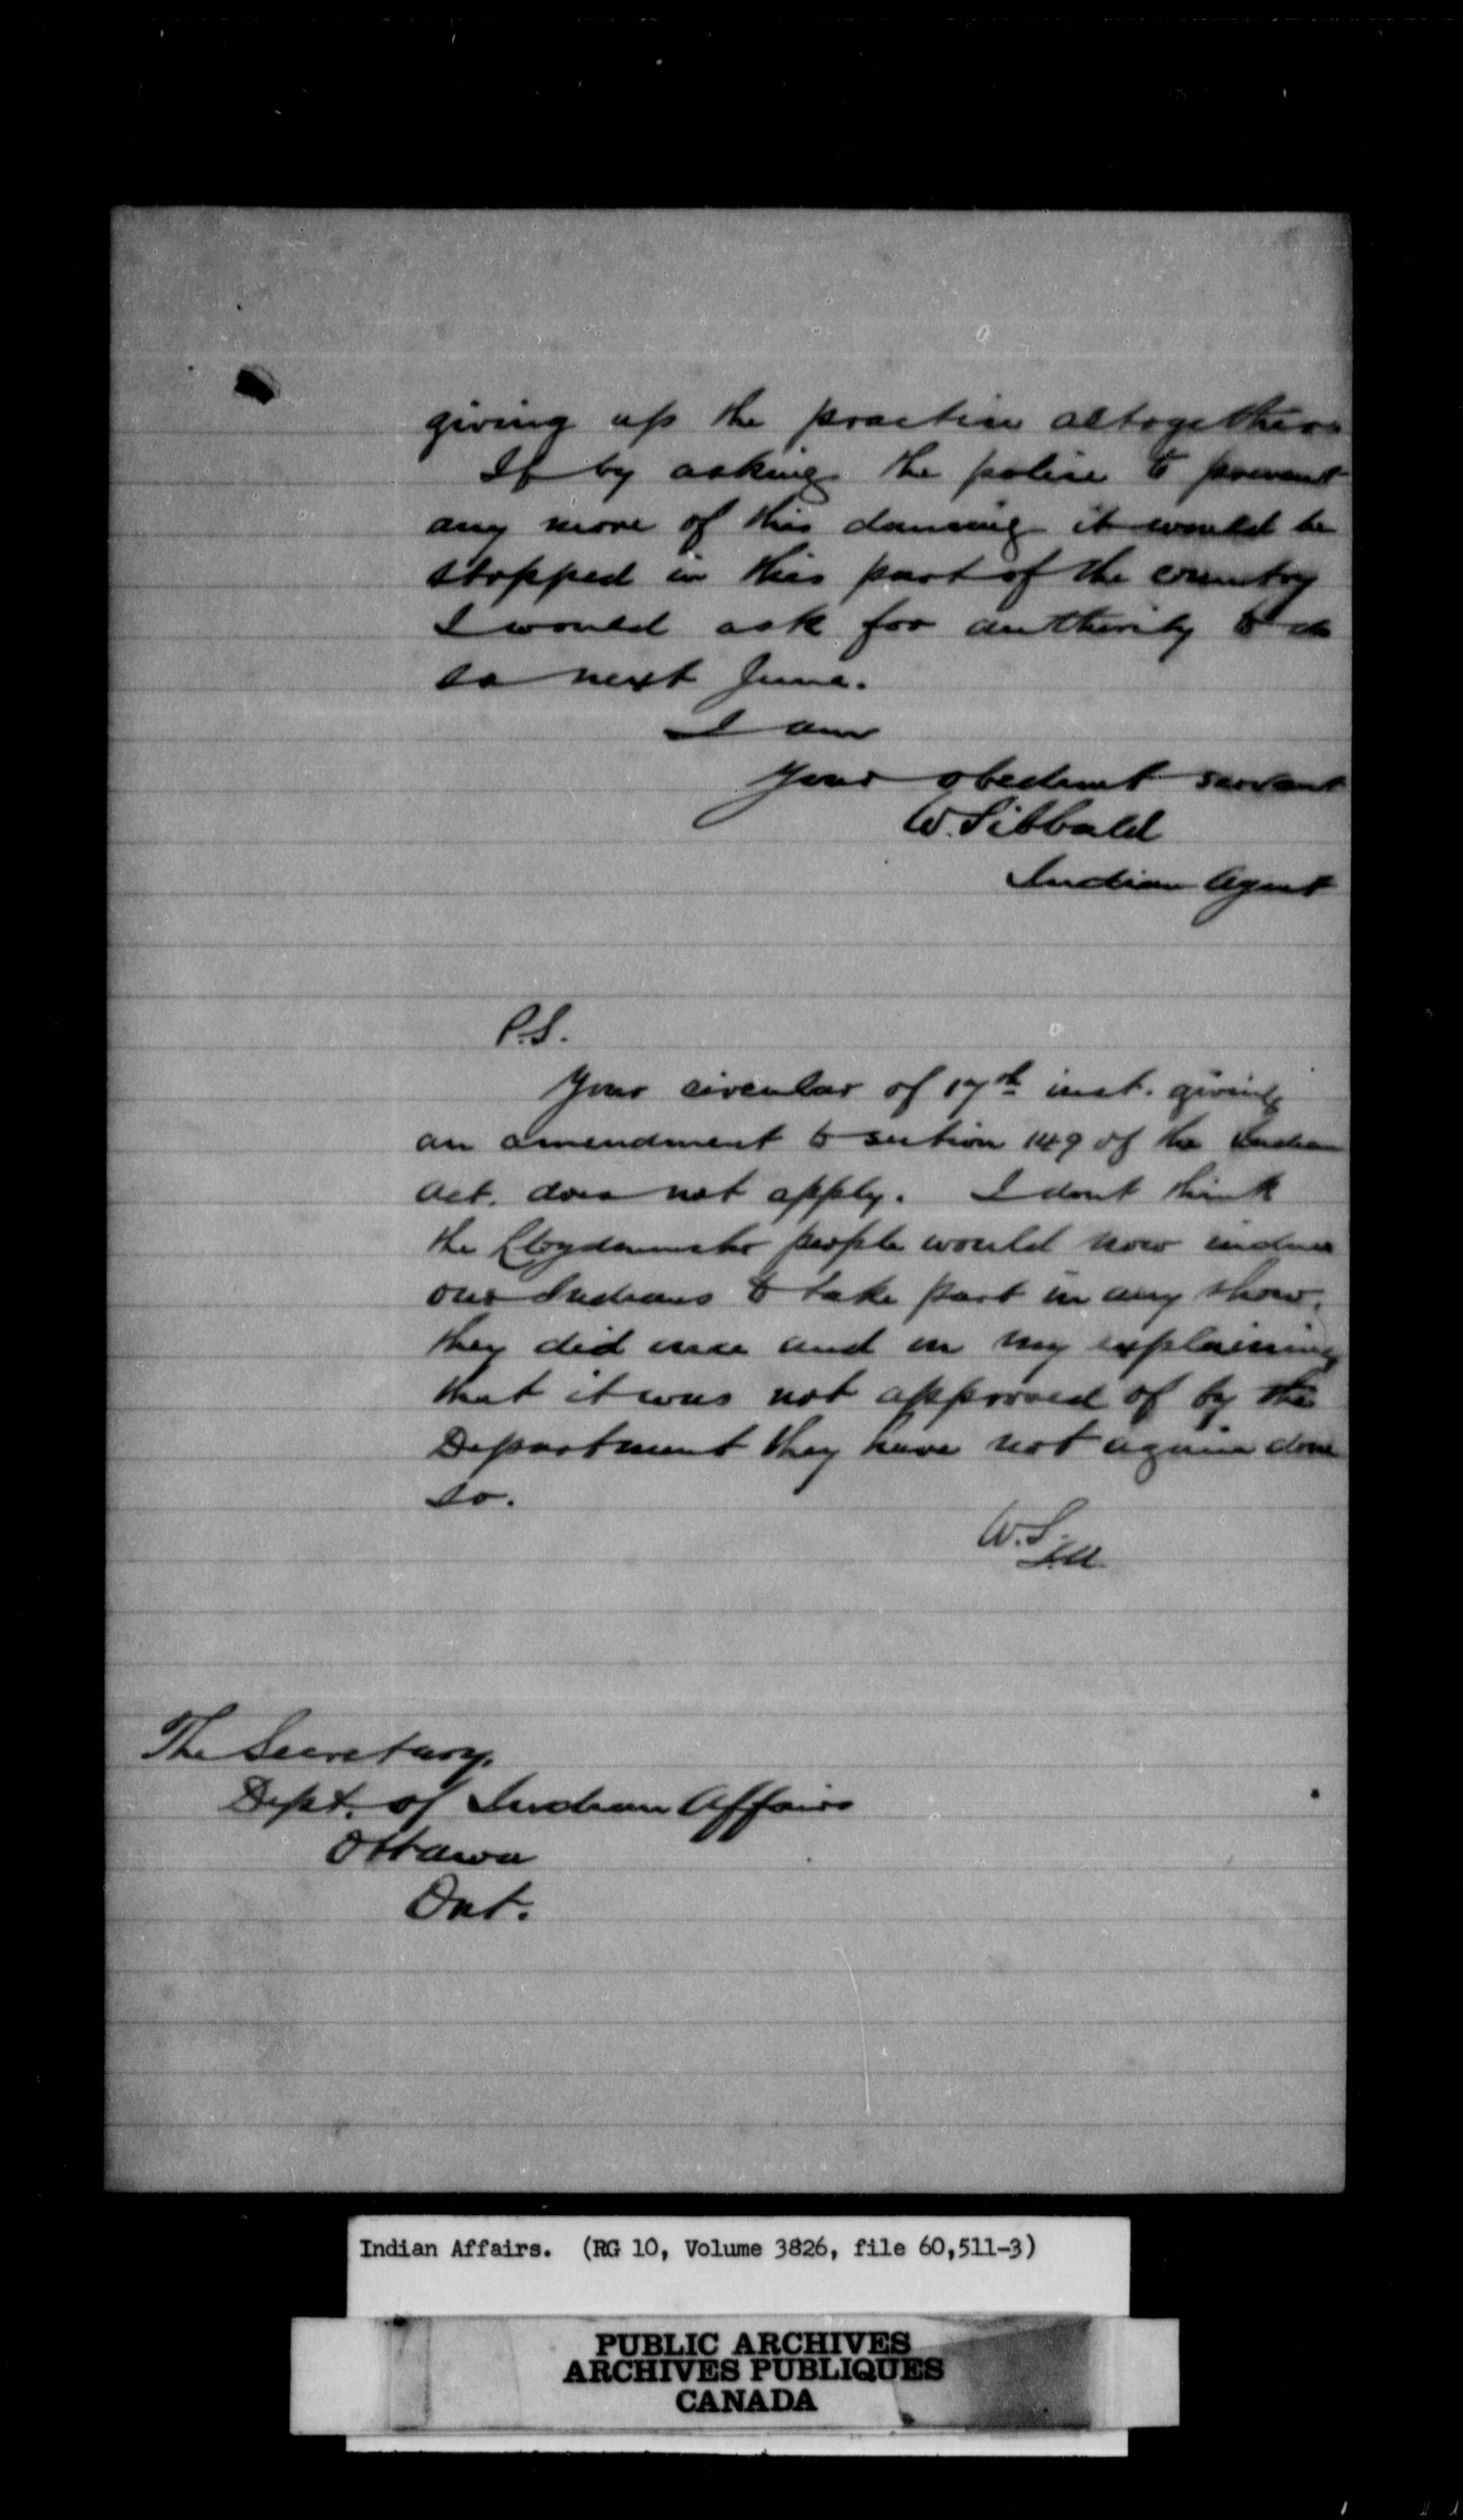 giving up the practice altogether.
If by asking the police to prevent
any more of this dancing it would be
stopped in this part of the country
I would ask for authority to do
so next June.
I am
Your obedient servant
W. Sibbald
Indian Agent
P.S.
Your circular of 17th inst. giving
an amendment to section 149 of the Indian
Act. does not apply. I dont think
the Lloydminster people would now induce
our Indians to take part in any show.
they did once and on my explaining
that it was not approved of by the
Department they have not again done
so.
W.S.
I.A.
The Secretary.
Dept. of Indian Affairs
Ottawa
Ont.
Indian Affairs. (RG 10, Volume 3826, file 60,511-3)
PUBLIC ARCHIVES
ARCHIVES PUBLIQUES
CANADA